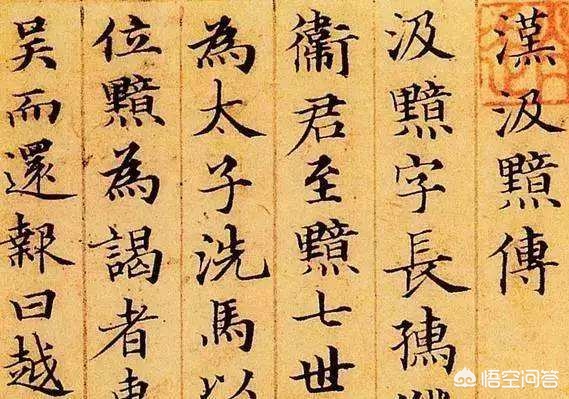 漢汲黯傳
汲黯字長孺
衞君至黯七世
為太子洗馬以
位黯為謁者東
吳而還報曰越
悟空问答